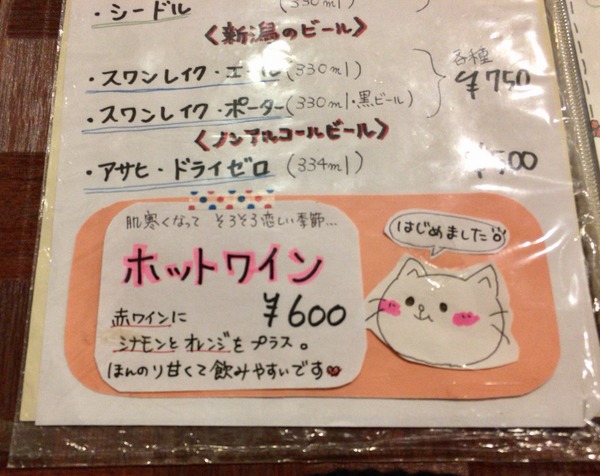 ・シードル
<新潟のビール>
・スワンレイク・エール(330ml)
各種
¥750
・スワンレイク・ポーター(330ml・黒ビール)
<ノンアルコールビール>
・アサヒ・ドライゼロ (334ml)
肌寒くなって そろそろ恋しい季節…
はじめました
ホットワイン
¥600
赤ワインに
シナモンとオレンジをプラス。
ほんのり甘くて飲みやすいです